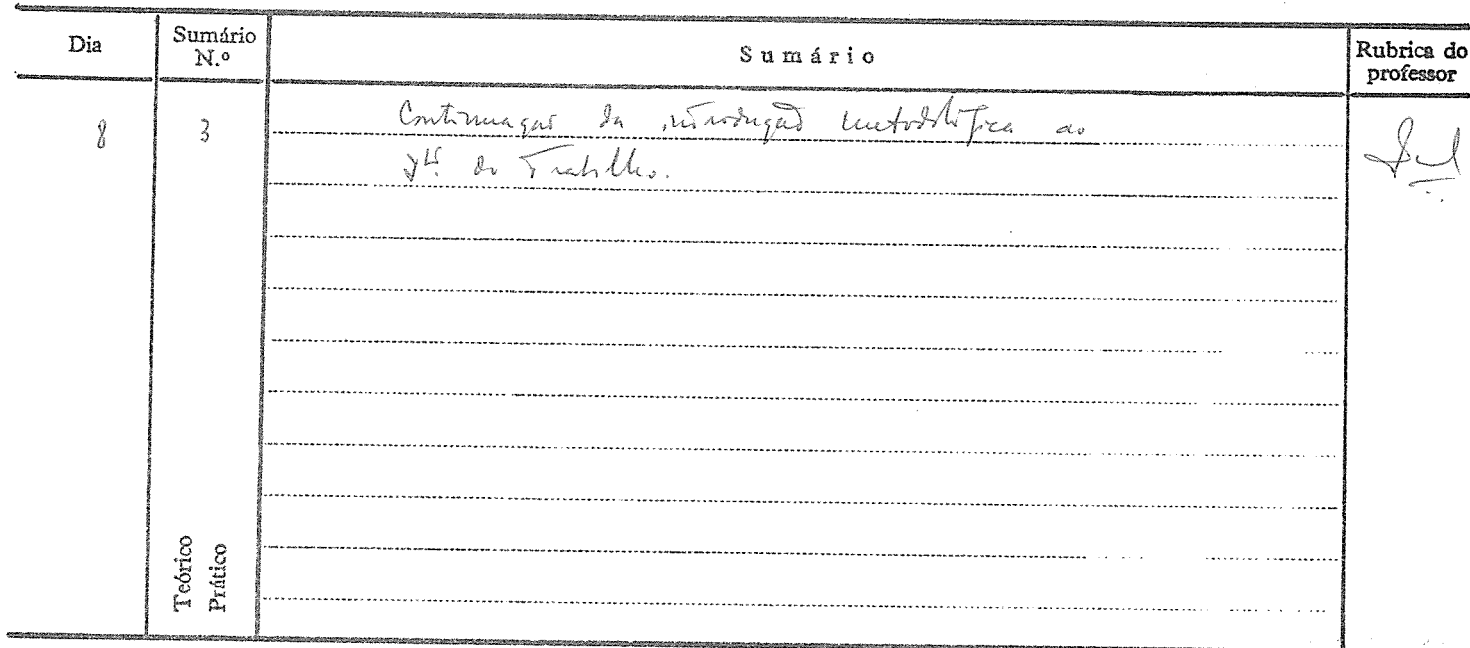 Dia
Sumário N.º
Sumário
Rubrica do professor
8
3
Continuação da introdução metodológica ao
do Trabalho.
Teórico
Prático